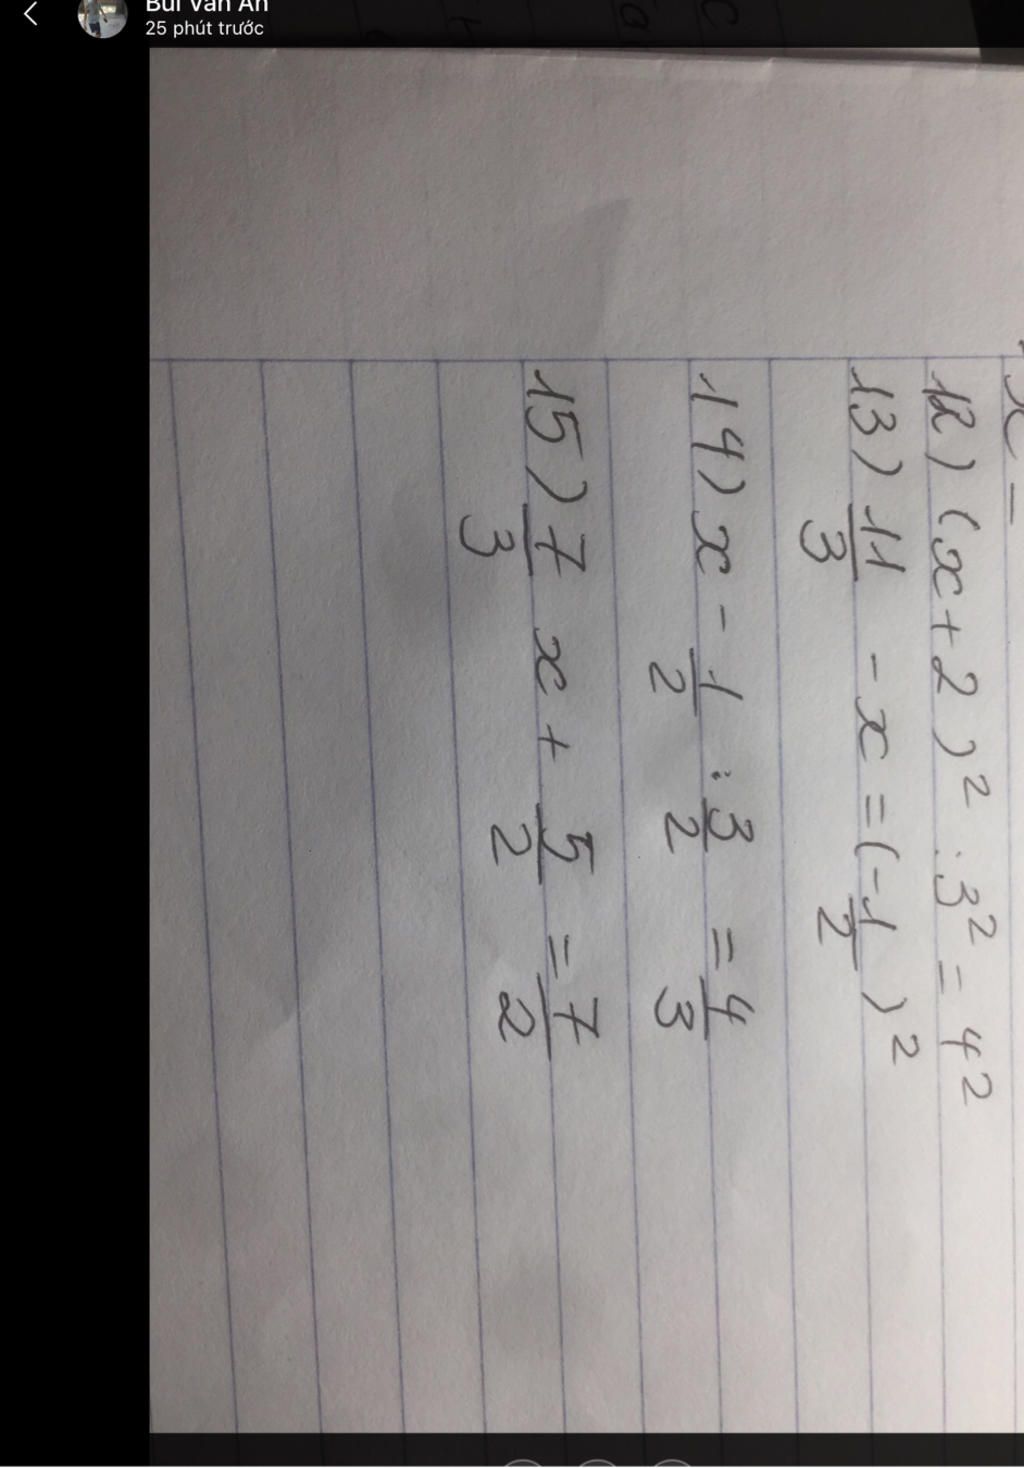 Bùi Văn An
25 phút trước
12) (x+2)² : 3² = 4²
13) 11/3 - x = (-1/2)²
14) x - 1/2 : 3/2 = 4/3
15) 7/3 x + 5/2 = 7/2